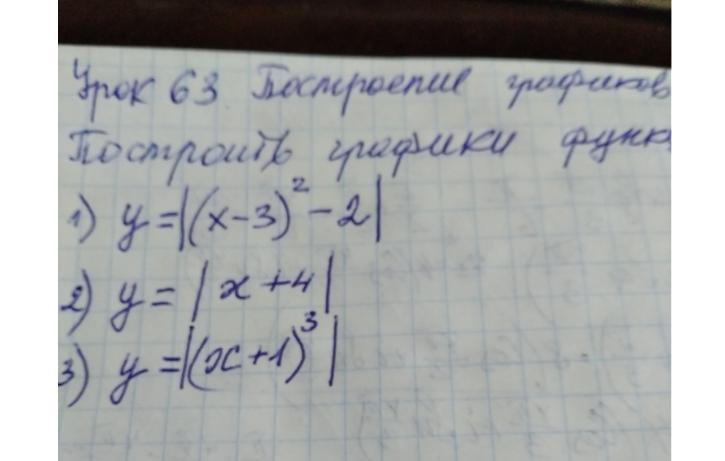 Урок 63 Построение графиков
Построить графики функ
1) y = |(x-3)² - 2|
2) y = |x+4|
3) y = |(x+1)³|